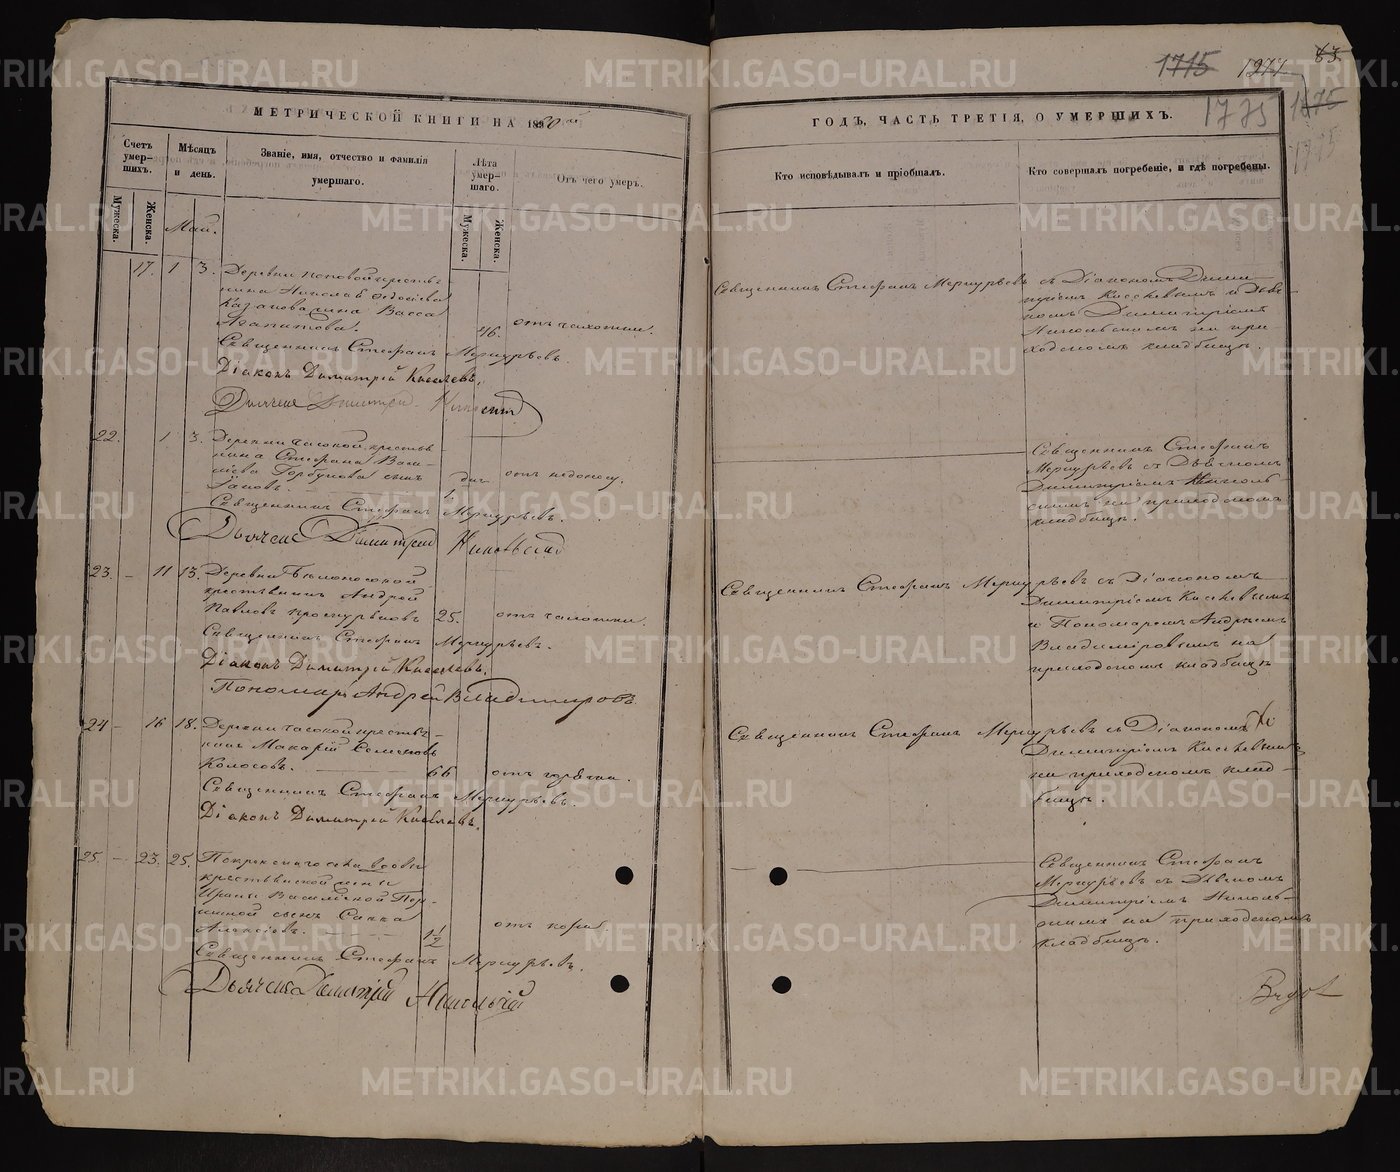 1715 1277 83
1775 1675
1775
МЕТРИЧЕСКОЙ КНИГИ НА 1860й
ГОДЪ, ЧАСТЬ ТРЕТІЯ, О УМЕРШИХЪ.
Счетъ умер-шихъ.
Мужеска.
Женска.
Мѣсяцъ и день.
Званіе, имя, отчество и фамилія умершаго.
Лѣта умер-шаго.
Мужеска.
Женска.
Отъ чего умеръ.
Кто исповѣдывалъ и пріобщалъ.
Кто совершалъ погребеніе, и гдѣ погребены.
Май.
17. 1 3. Деревни кресть-
янина Николая Ѳедосѣева
жена Васса
Агапитова. 46. отъ чахотки.
Священникъ Стефанъ Меркурьевъ съ Діакономъ Дими-
тріемъ Киселевымъ и Дьяч-
комъ Димитріемъ
Никольскимъ на при-
ходскомъ кладбищѣ.
Священникъ Стефанъ Меркурьевъ.
Діаконъ Димитрій Киселевъ.
Дьячекъ Димитрій
22. 1 3. Деревни Часовой крестья-
нина Стефана Васи-
лѣева Горбунова сынъ
Іаковъ. дн. отъ недоносу.
Священникъ Стефанъ
Меркурьевъ съ Дьячкомъ
Димитріемъ Николь-
скимъ на приходскомъ
кладбищѣ.
Священникъ Стефанъ Меркурьевъ.
Дьячекъ Димитрій Никольскій
23. - 11 13. Деревни Бѣлоносовой
крестьянинъ Андрей
Павловъ 25. отъ чахотки.
Священникъ Стефанъ Меркурьевъ съ Діакономъ
Димитріемъ Киселевымъ
и Пономаремъ Андреемъ
Владиміровымъ на
приходскомъ кладбищѣ
Священникъ Стефанъ Меркурьевъ.
Діаконъ Димитрій Киселевъ.
Пономарь Андрей Владимировъ
24 - 16 18. Деревни Часовой крестья-
нинъ Макарій Семеновъ
Колосовъ. 66 отъ горячки.
Священникъ Стефанъ Меркурьевъ съ Діакономъ
Димитріемъ Киселевымъ
на приходскомъ клад-
бищѣ.
Священникъ Стефанъ Меркурьевъ.
Діаконъ Димитрій Киселевъ.
25. - 23. 25. Покровскаго села вдовы
крестьянской жены
Ирины Васильевой
сынъ Савва
Алексѣевъ. 1 1/2 отъ кори.
Священникъ Стефанъ
Меркурьевъ съ Дьячкомъ
Димитріемъ Николь-
скимъ на приходскомъ
кладбищѣ.
Священникъ Стефанъ Меркурьевъ.
Дьячекъ Димитрій Никольскій
METRIKI.GASO-URAL.RU